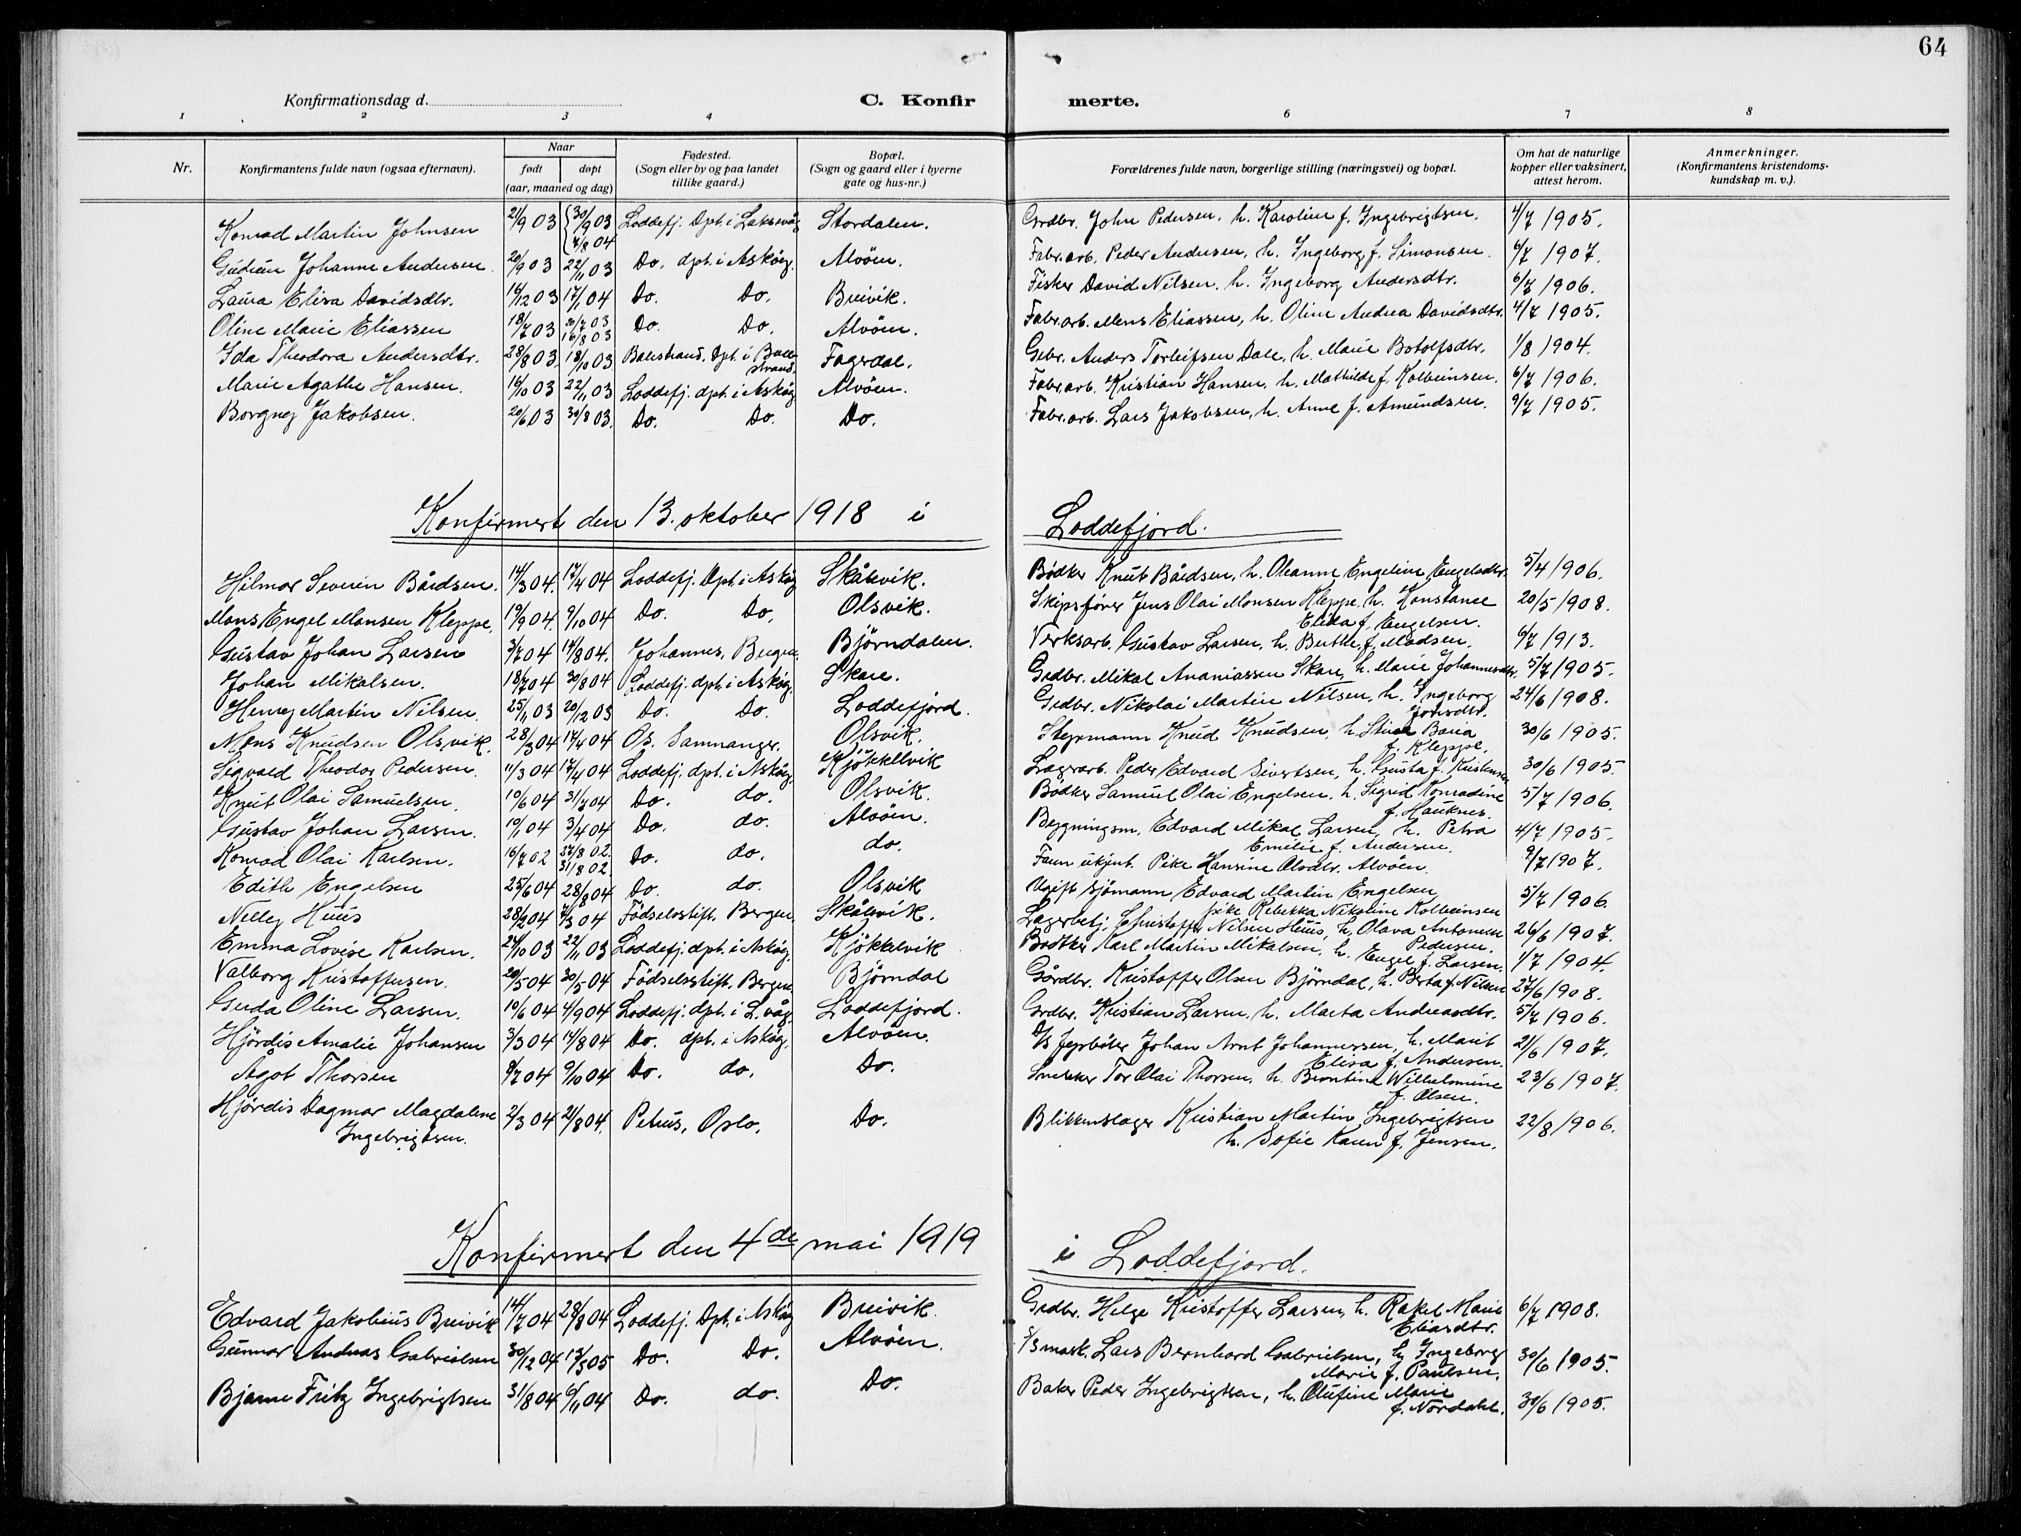 64
Konfirmationsdag d. C. Konfirmerte.
1 2 3 4 5 6 7 8
Nr. Konfirmantens fulde navn (ogsaa efternavn). Naar født døpt (aar, maaned og dag) Fødested. (Sogn eller by og paa landet tillike gaard.) Bopæl. (Sogn og gaard eller i byerne gate og hus-nr.) Forældrenes fulde navn, borgerlige stilling (næringsvei) og bopæl. Om hat de naturlige kopper eller vaksinert, attest herom. Anmerkninger. (Konfirmantens kristendomskundskap m. v.).
Konrad Martin Johnsen 21/9 03 {30/9 03 7/8 04 Loddefj. Dpt. i Laksevåg Stordalen. Grdbr. John Pedersen, h. Karoline f. Ingebrigtsen. 4/7 1905.
Gudrun Johanne Andersen. 20/9 03 22/11 03 Do. dpt. i Askøy. Alvøen. Fabr.arb. Peder Andersen, h. Ingeborg f. Simonsen. 6/7 1907.
Laura Elisa Davidsdtr. 16/12 03 17/1 04 Do. Do. Breivik. Fisker David Nilsen, h. Ingeborg Andersdtr. 6/7 1906.
Oline Marie Eliassen 18/7 03 30/7 03 16/8 03 Do. Do. Alvøen. Fabr.arb. Mons Eliassen, h. Oline Andrea Davidsdtr. 4/7 1905.
Ida Theodora Andersdtr. 28/8 03 18/10 03 Balestrand, Dpt. i Balestrand. Fagerdal. Gbr. Anders Torleifsen Dale, h. Marie Botolfsdtr. 1/8 1904.
Marie Agathe Hansen. 16/10 03 22/11 03 Loddefj. dpt. i Askøy Alvøen. Fabr.arb. Kristian Hansen, h. Mathilde f. Kolbeinsen. 6/7 1906.
Borgny Jakobsen. 20/6 03 30/8 03. Do. Do. Do. Fabr.arb. Lars Jakobsen, h. Anne f. Amundsen. 9/7 1905.
Konfirmert den 13. oktober 1918 i Loddefjord.
Hilmar Severin Bårdsen. 14/3 04. 17/4 04 Loddefj. Dpt. i Askøy Skålevik. Bødker Knut Bårdsen, h. Oleanne Engeline Engelsdtr. 5/4 1906.
Mons Engel Monsen Kleppe. 19/9 04. 9/10 04 Do. Do. Olsvik. Skipsfører Jens Olai Monsen Kleppe, h. Konstance Elida f. Engelsen. 20/5 1908.
Gustav Johan Larsen 3/7 04 14/8 04. Johannes, Bergen. Bjørndalen. Verksarb. Gustav Larsen, h. Berthe f. Madsen. 6/7 1913.
Johan Mikalsen. 18/7 04 30/8 04 Loddefj. dpt. i Askøy. Skare. Grdbr. Mikal Ananiassen Skare, h. Marie Johannesdtr. 5/7 1905.
Henry Martin Nilsen. 25/11 03 20/12 03 Do. Do. Loddefjord. Grdbr. Nikolai Martin Nilsen, h. Ingeborg Jonsdtr. 24/6 1908.
Mons Knudsen Olsvik. 28/3 04 17/4 04 Os. Samnanger. Olsvik. Styrmann Knud Knudsen, h. Stina Baria f. Kleppe. 30/6 1905.
Sigvald Theodor Pedersen. 11/3 04 17/4 04 Loddefj. dpt. i Askøy. Kjøkkelvik Lagerarb. Peder Edvard Sivertsen, h. Gusta f. Kristensen 30/6 1905.
Knut Olai Samuelsen. 19/6 04 31/7 04 Do. do. Olsvik. Bødker Samuel Olai Engelsen, h. Sigrid Konradine f. Hauknes. 5/7 1906.
Gustav Johan Larsen. 19/1 04 3/4 04 Do. do. Alvøen. Bygningsm. Edvard Mikal Larsen, h. Petra Emilie f. Andersen. 4/7 1905.
Konrad Olai Karlsen. 16/7 02 27/8 02. 31/8 02 Do. do. do. Faren ukjent. Pike Hansine Olsdtr. Alvøen. 9/7 1907.
Edith Engelsen 25/6 04 28/8 04 Do. do. Olsvik Ugift sjømann Edvard Martin Engelsen, pike Rebekka Nikoline Kolbeinsen 5/7 1906.
Nelly Huus 28/2 04 7/3 04 Fødselsstift. Bergen. Skålevik. Lagerbetj. Christoffer Nilsen Huus, h. Olava Antonette Pedersen. 26/6 1907.
Emma Lovise Karlsen. 24/10 03 22/11 03 Loddefj. dpt. i Askøy. Kjøkkelvik Bødker Karl Martin Mikalsen, h. Engel f. Larsen. 1/7 1904.
Valborg Kristoffersen. 20/5 04 30/5 04 Fødselsstift. Bergen. Bjørndal Gårdbr. Kristoffer Olsen Bjørndal, h. Berta f. Nilsen 27/6 1908.
Gerda Oline Larsen. 19/6 04 4/9 04 Loddefj. dpt. i L.våg. Loddefjord. Grdbr. Kristian Larsen, h. Marta Andreasdtr. 5/7 1906.
Hjørdis Amalie Johansen 3/3 04 14/8 04 Do. dpt. i Askøy. Alvøen. D/s fyrbøter Johan Arnt Johannessen, h. Marit Elisa f. Andersen. 21/6 1907.
Ågot Thorsen 8/7 04 9/10 04 Do. do. Do. Snekker Tor Olai Thorsen, h. Berntine Wilhelmine f. Olsen. 23/6 1907.
Hjørdis Dagmar Magdalene Ingebrigtsen. 2/3 04 21/8 04. Petrus, Oslo. Do. Blikkenslager Kristian Martin Ingebrigtsen h. Sofie Karen f. Jensen. 22/8 1906.
Konfirmert den 4de mai 1919 i Loddefjord.
Edvard Jakobius Breivik 14/7 04 28/8 04 Loddefj. Dpt. i Askøy Breivik. Grdbr. Helge Kristoffer Larsen, h. Rakel Marie Eliasdtr. 6/7 1908.
Gunnar Andreas Gabrielsen 30/12 04 12/3 05 Do. Do. Alvøen. D/S mask. Lars Bernhard Gabrielsen, h. Ingeborg Marie f. Paulsen. 30/6 1905.
Bjarne Fritz Ingebrigtsen 31/8 04 6/11 04 Do. do. Do. Baker Peder Ingebrigtsen, h. Olufine Marie f. Nordahl. 30/6 1905.